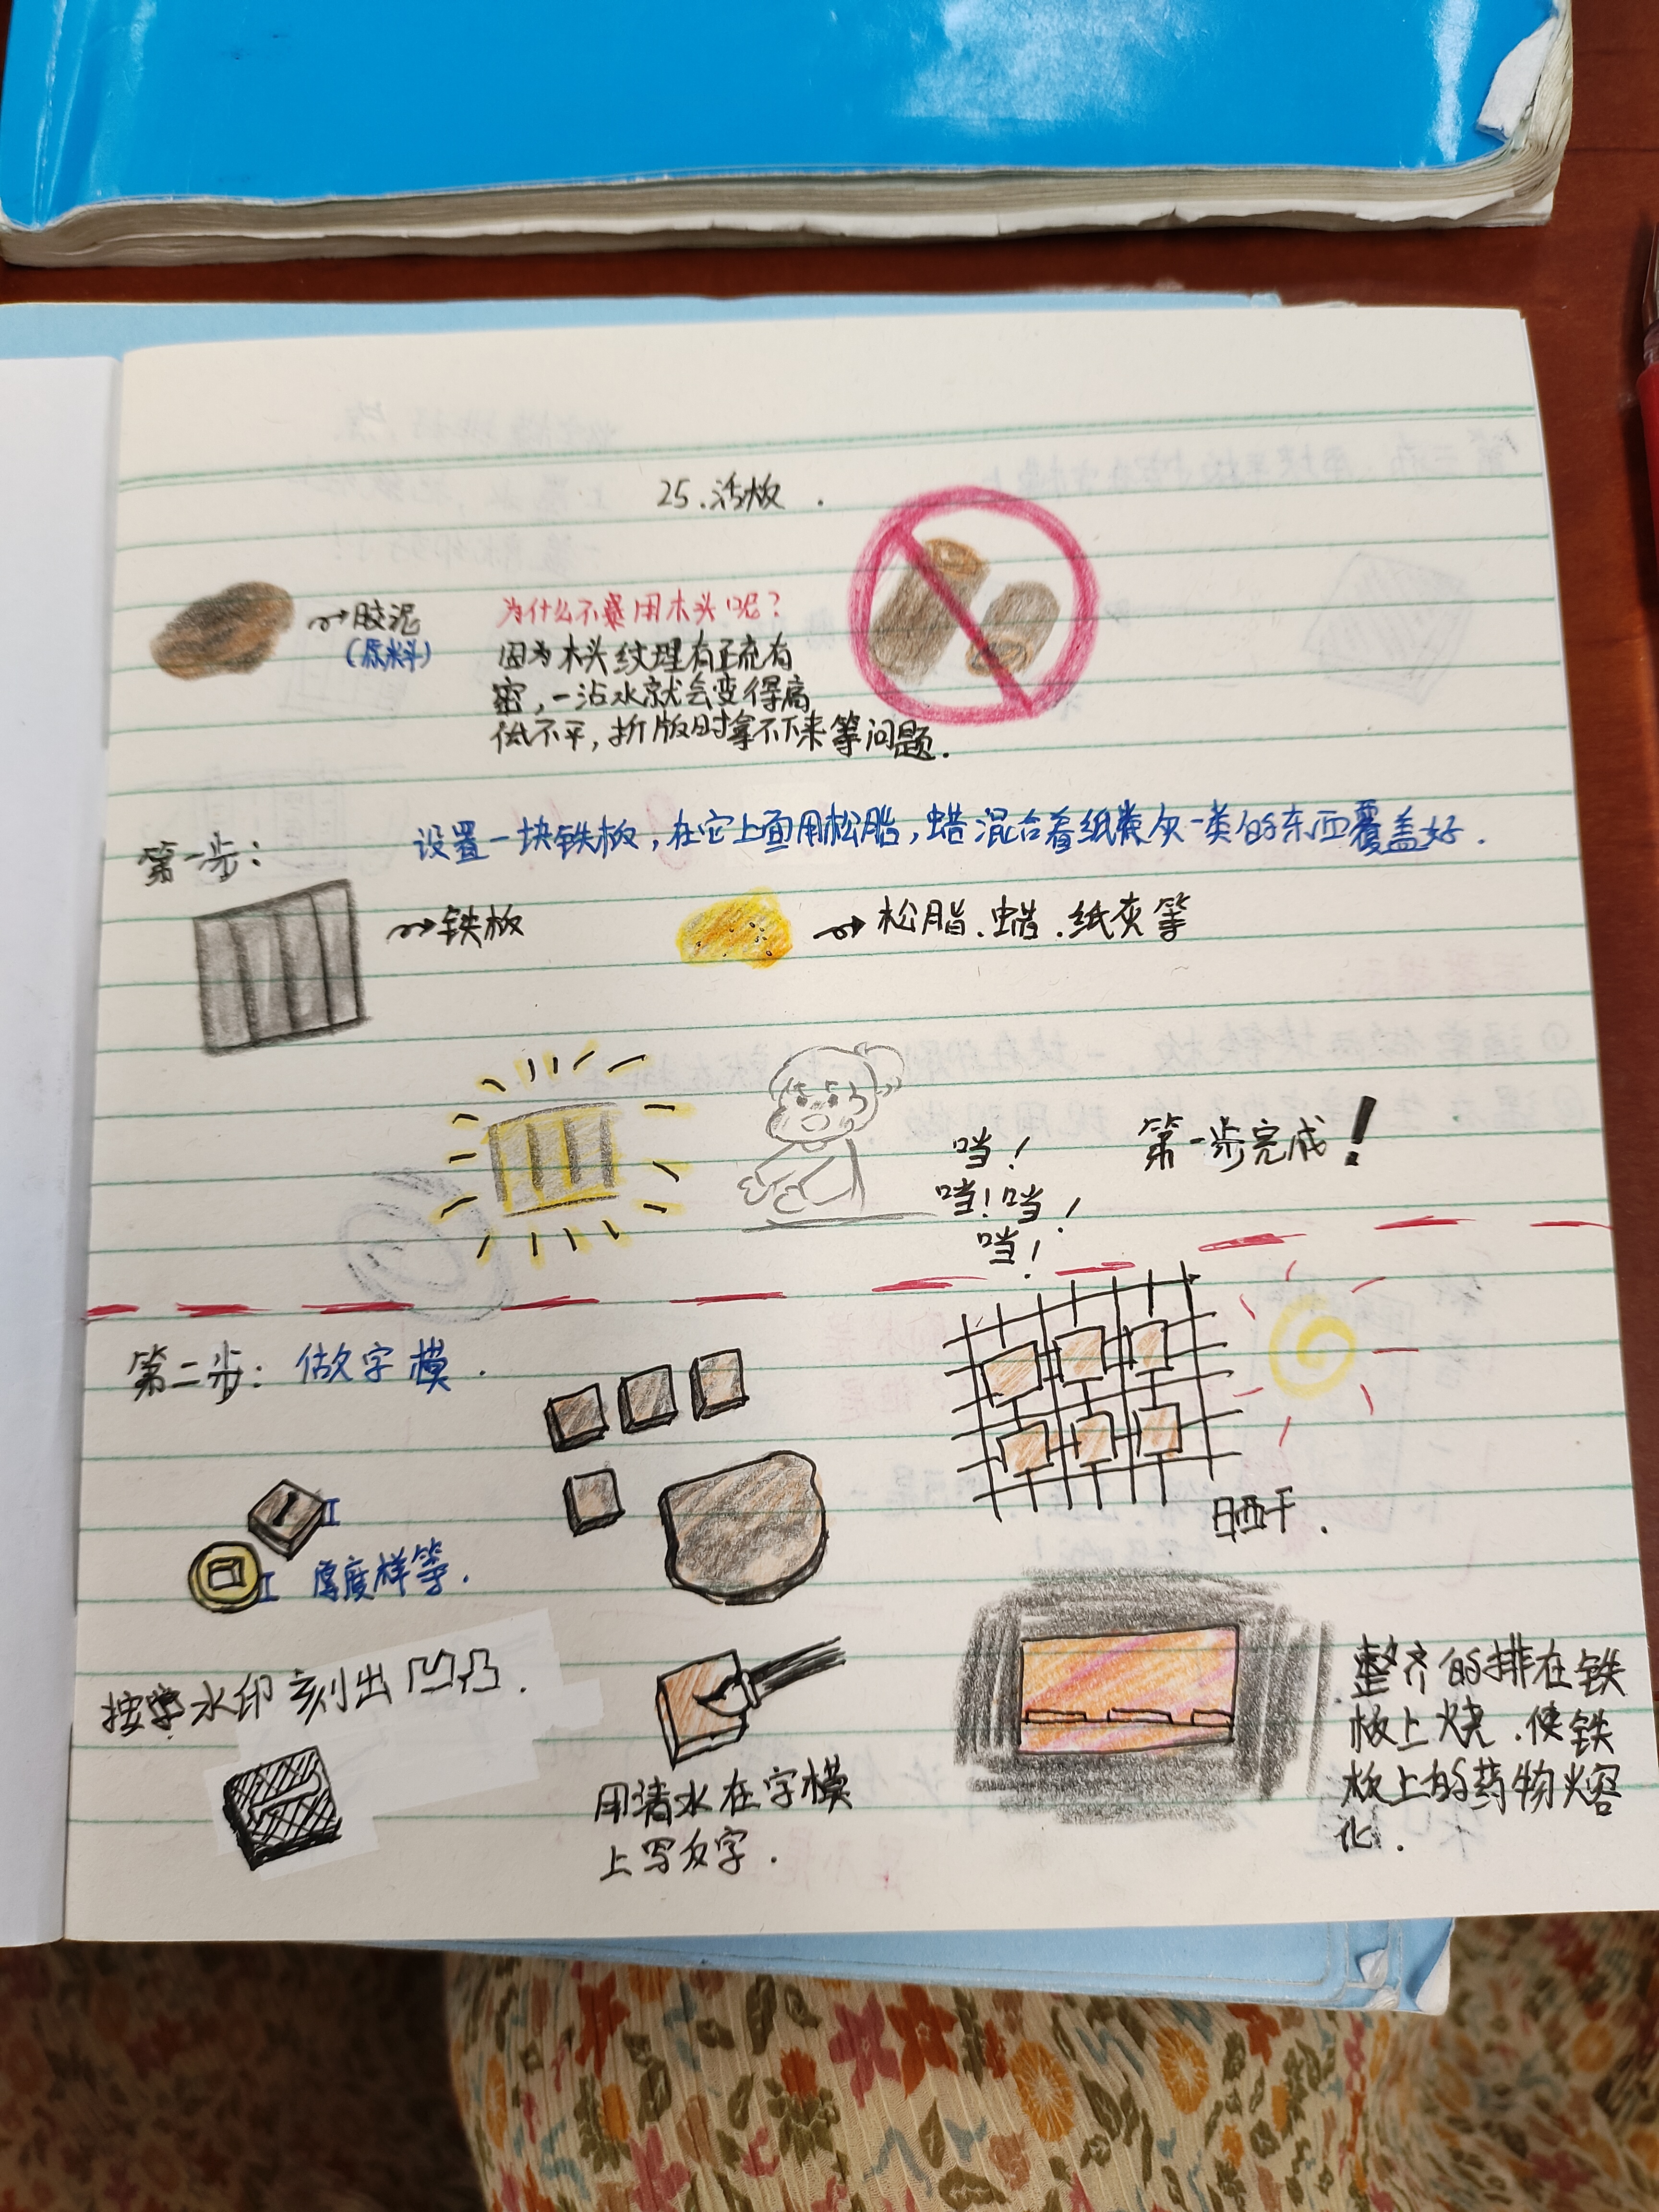 25.活板.
胶泥
(原料)
为什么不用木头呢?
因为木头纹理有疏有
密,一沾水就会变得高
低不平,拆版时拿不下来等问题.
第一步:
设置一块铁板,在它上面用松脂,蜡混合着纸灰一类的东西覆盖好.
铁板
松脂.蜡.纸灰等
当!
当!当!
当!
第一步完成!
第二步:做字模.
晒干.
厚度样等.
按水印刻出凹凸.
用清水在字模
上写反字.
整齐的排在铁
板上烧.使铁
板上的药物熔
化.